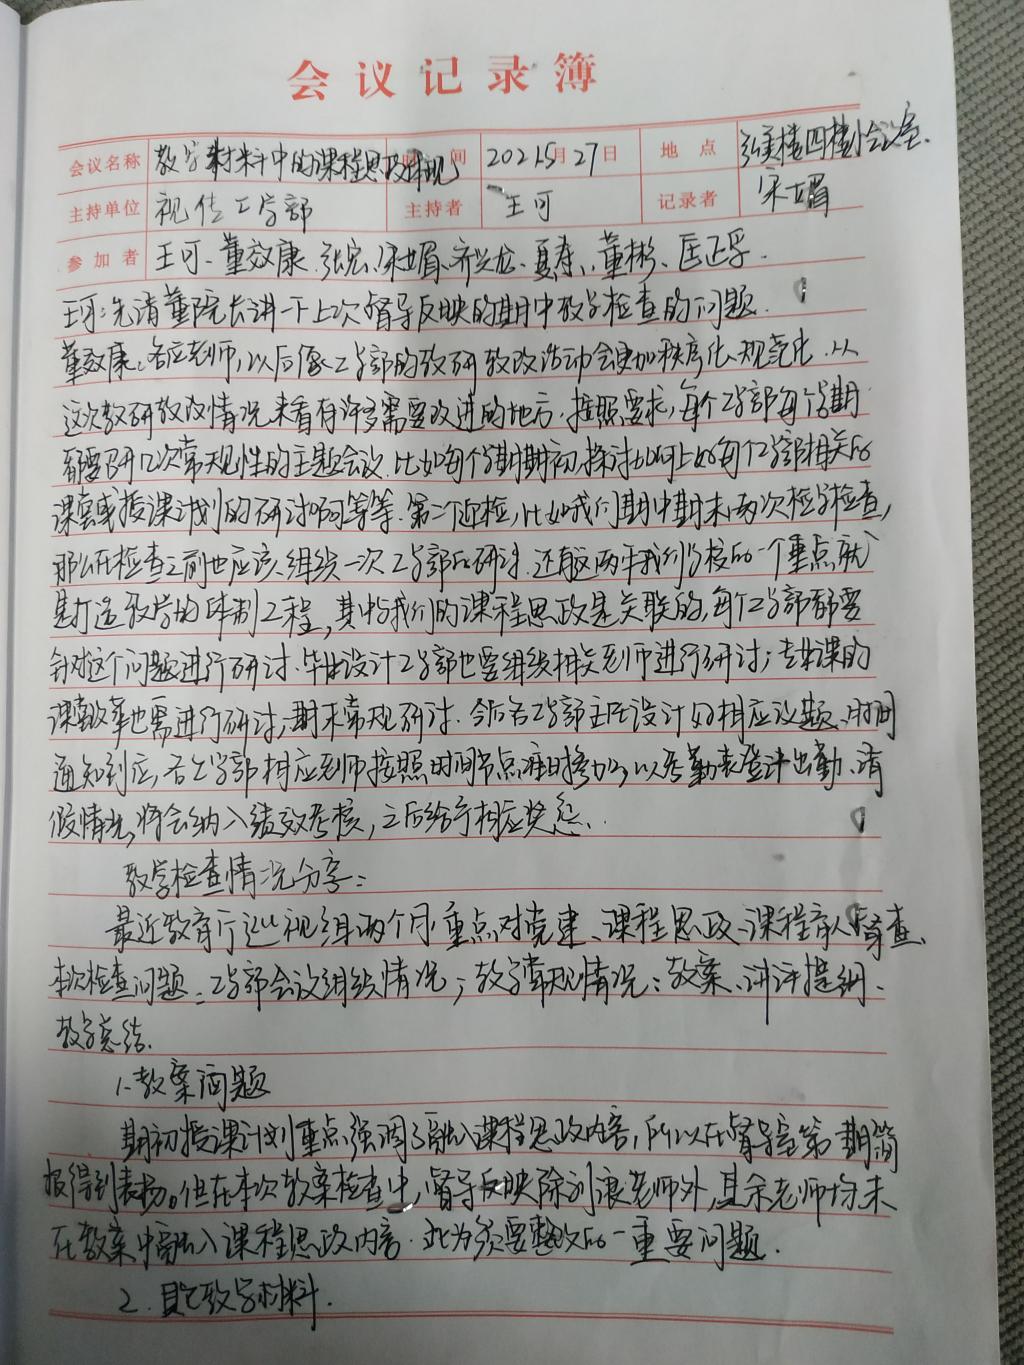 会议记录簿
会议名称 教学材料中的课程思政体现 时间 2021.5月27日 地点 弘美楼四楼小会议室.
主持单位 视传工学部 主持者 王可 记录者 宋如媚
参加者 王可、董效康、张宏、宋如媚、齐兴龙、夏寿、董彬、匡正孚.
王可:先请董院长讲一下上次督导反映的期中教学检查的问题.
董效康:各应老师,以后像工学部的教研教改活动会更加秩序化、规范化.从
这次教研教改情况来看有许多需要改进的地方.按照要求,每个工学部每个学期
都要召开几次常规性的主题会议.比如每个学期期初探讨如何上好每个工学部相关的
课堂或授课计划的研讨啊等等.第二个迎检,比如我们期中期末两次检学检查,
那么在检查之前也应该组织一次工学部的研讨.还有这两年我们学校的一个重点就
是打造教学的体制工程,其中与我们的课程思政是关联的,每个工学部都要
针对这个问题进行研讨.毕业设计工学部也要组织相关老师进行研讨;专业课的
课堂改革也需进行研讨,期末常规研讨.今后各工学部主任设计好相应议题、时间
通知到位,各工学部相应老师按照时间节点准时参加,以考勤表登记出勤、请
假情况,将会纳入绩效考核,之后给予相应奖惩.
教学检查情况分享:
最近教育厅巡视组两个月重点对党建、课程思政、课程育人督查.
本次检查问题:工学部会议组织情况;教学常规情况:教案、讲评提纲、
教学总结.
1.教案问题
期初授课计划重点强调了融入课程思政内容,所以在督导室第期简
报得到表扬。但在本次教案检查中,督导反映除刘浪老师外,其余老师均未
在教案中融入课程思政内容.此为须要整改的一重要问题.
2.其它教学材料.